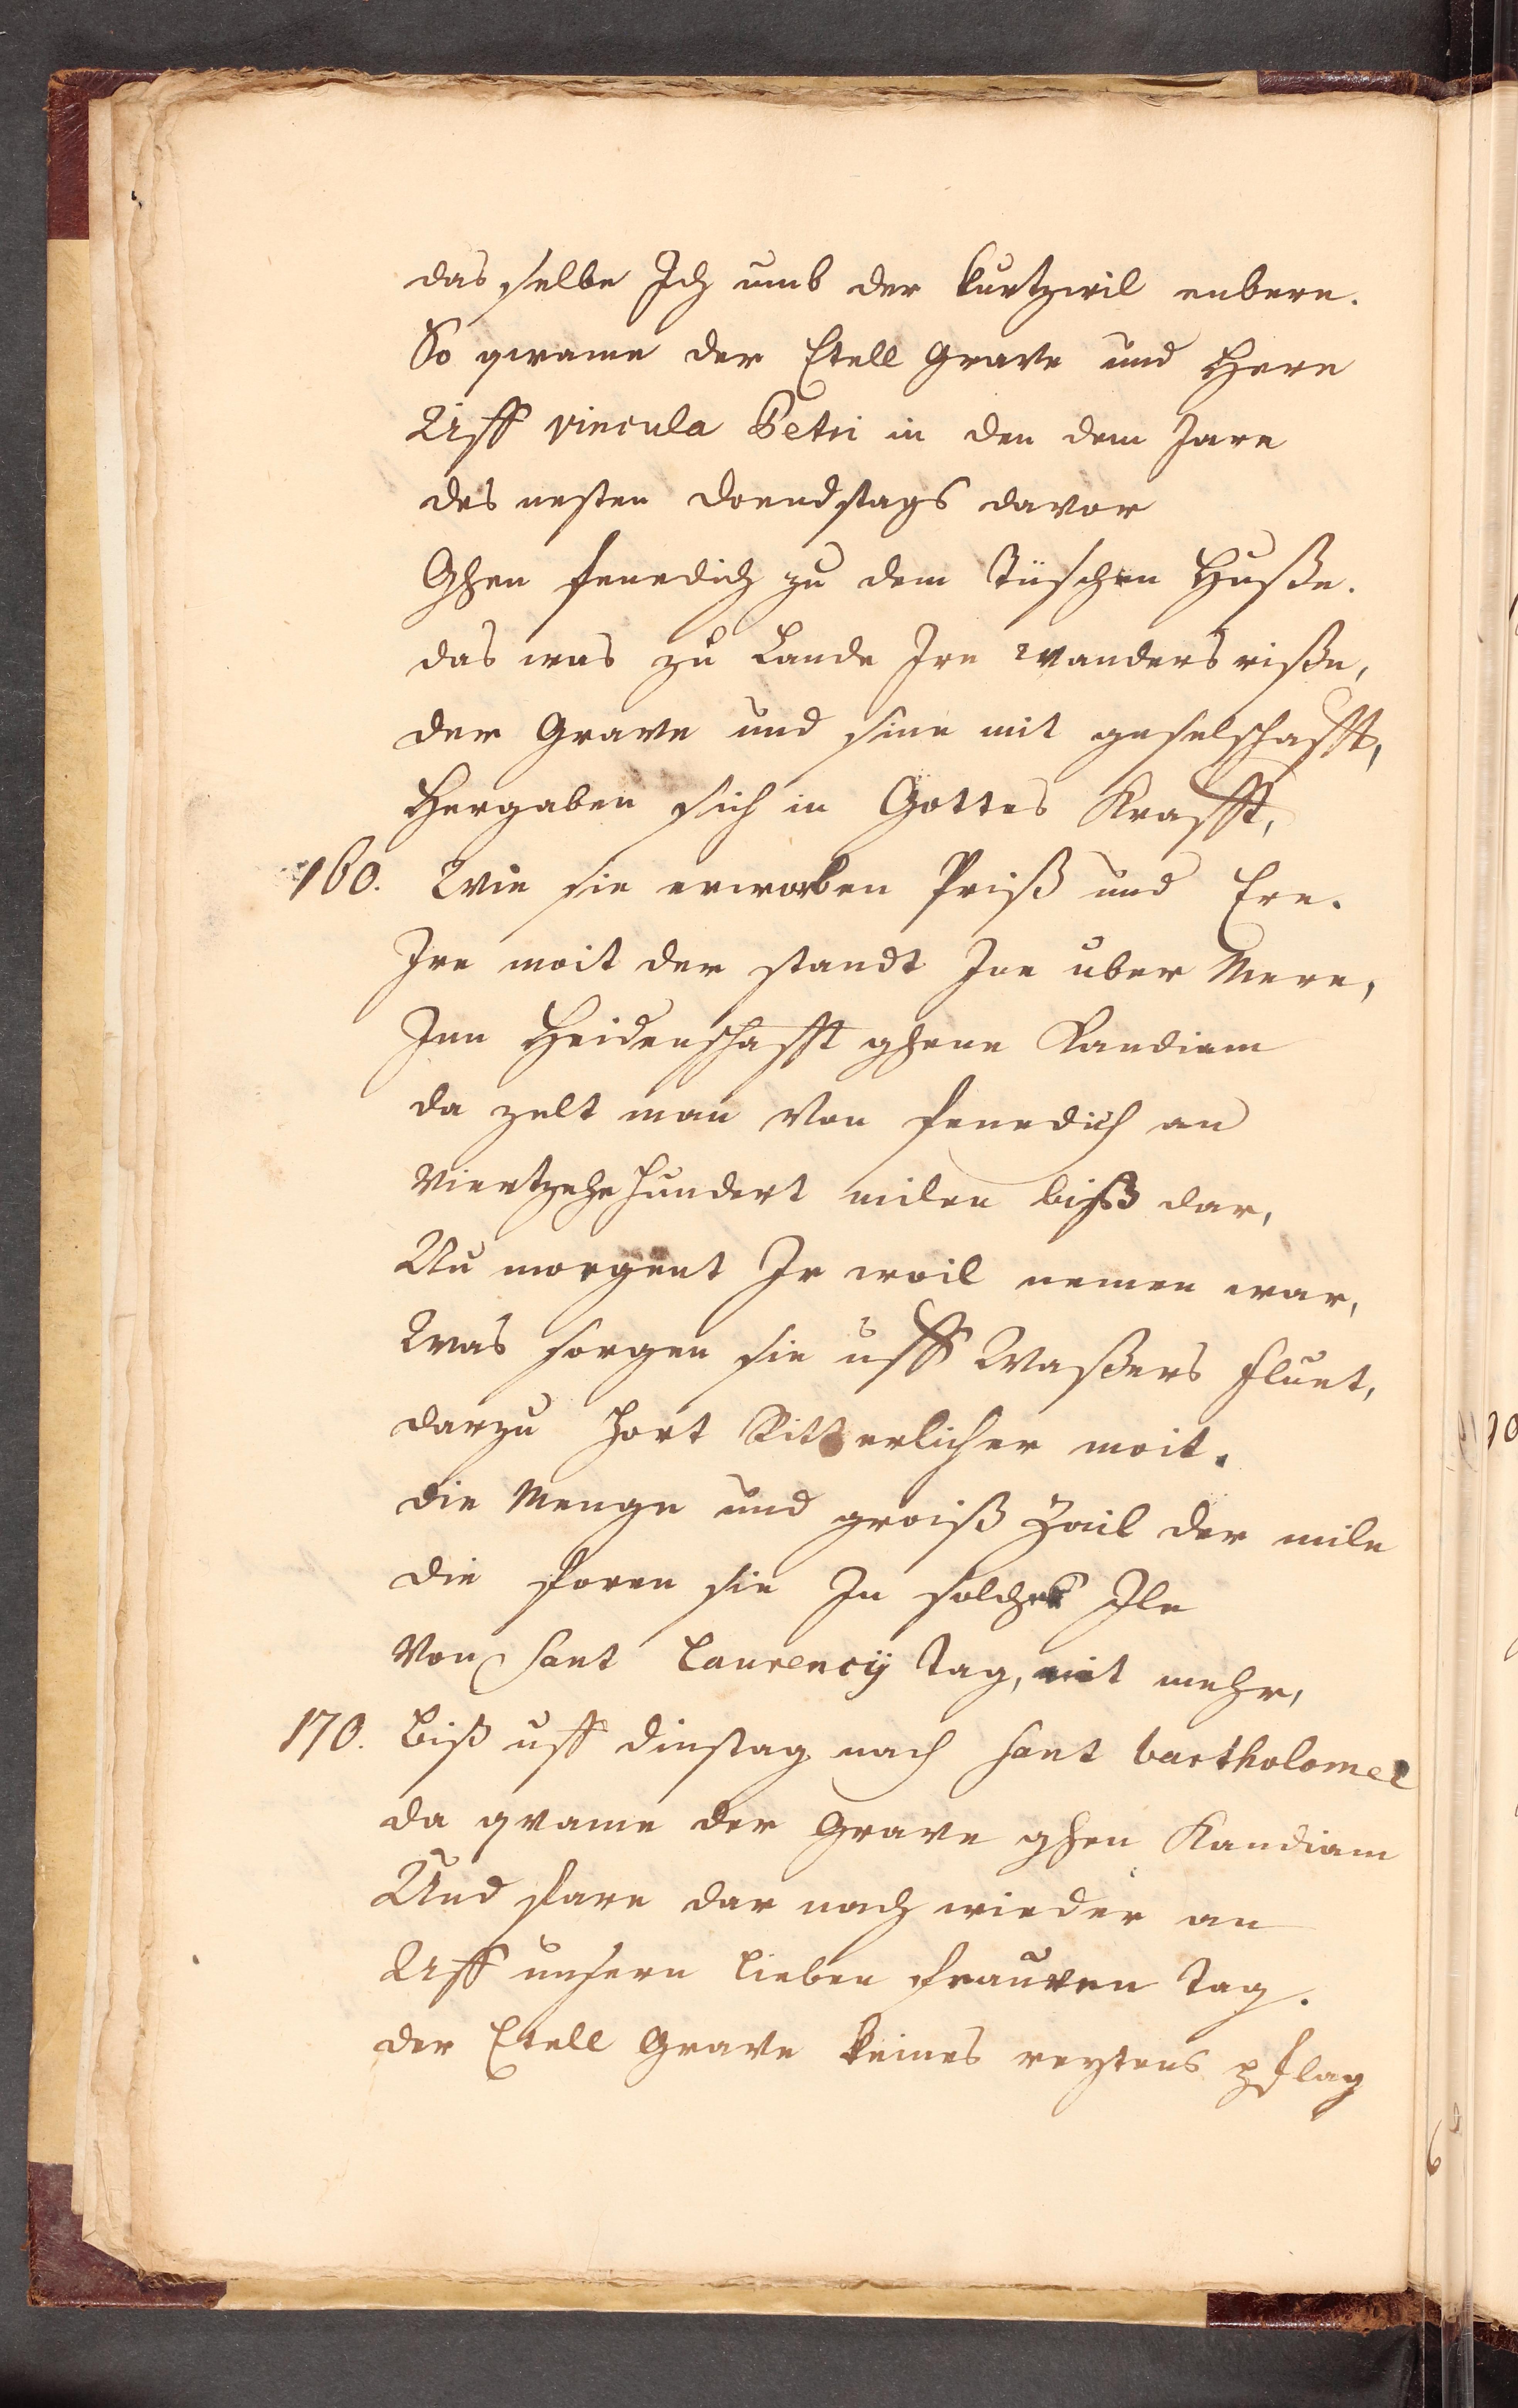 das selbe Ich umb der kurtzwil enbere.
So qwame der Etell Grave und Here
Uff vincula Petri in den dem Jare
des nesten donrdstags davor
Ghen fenedich zu dem Tüschen Huße.
das was zu Lande Ire wanders riße,
der Grave und sine mit geselschafft,
Hergaben sich in Gottes Krafft,
160. Wie sie erworben Priß und Ere.
Ire moit der standt Ine uber Mere,
Inn Heidenschafft ghene Kandiam
da zelt man von fenedich an
Viertzehe hundert milen biß dar,
Nu morgent Ir woil nemen war,
Was sorgen sie uff Waßers fluet,
darzu hort Ritterlicher moit.
die Menge und groiß Zail der mile
die foren sie In solcher Ile
Von sant Laurencij Tag, nit mehr,
170. Biß uff dinstag nach sant bartholomee
da qvame der Grave ghen Kandiam
Und fare dar nach wieder an
Uff unsern lieben frauwen Tag.
der Etell Grave keines reytens pflag